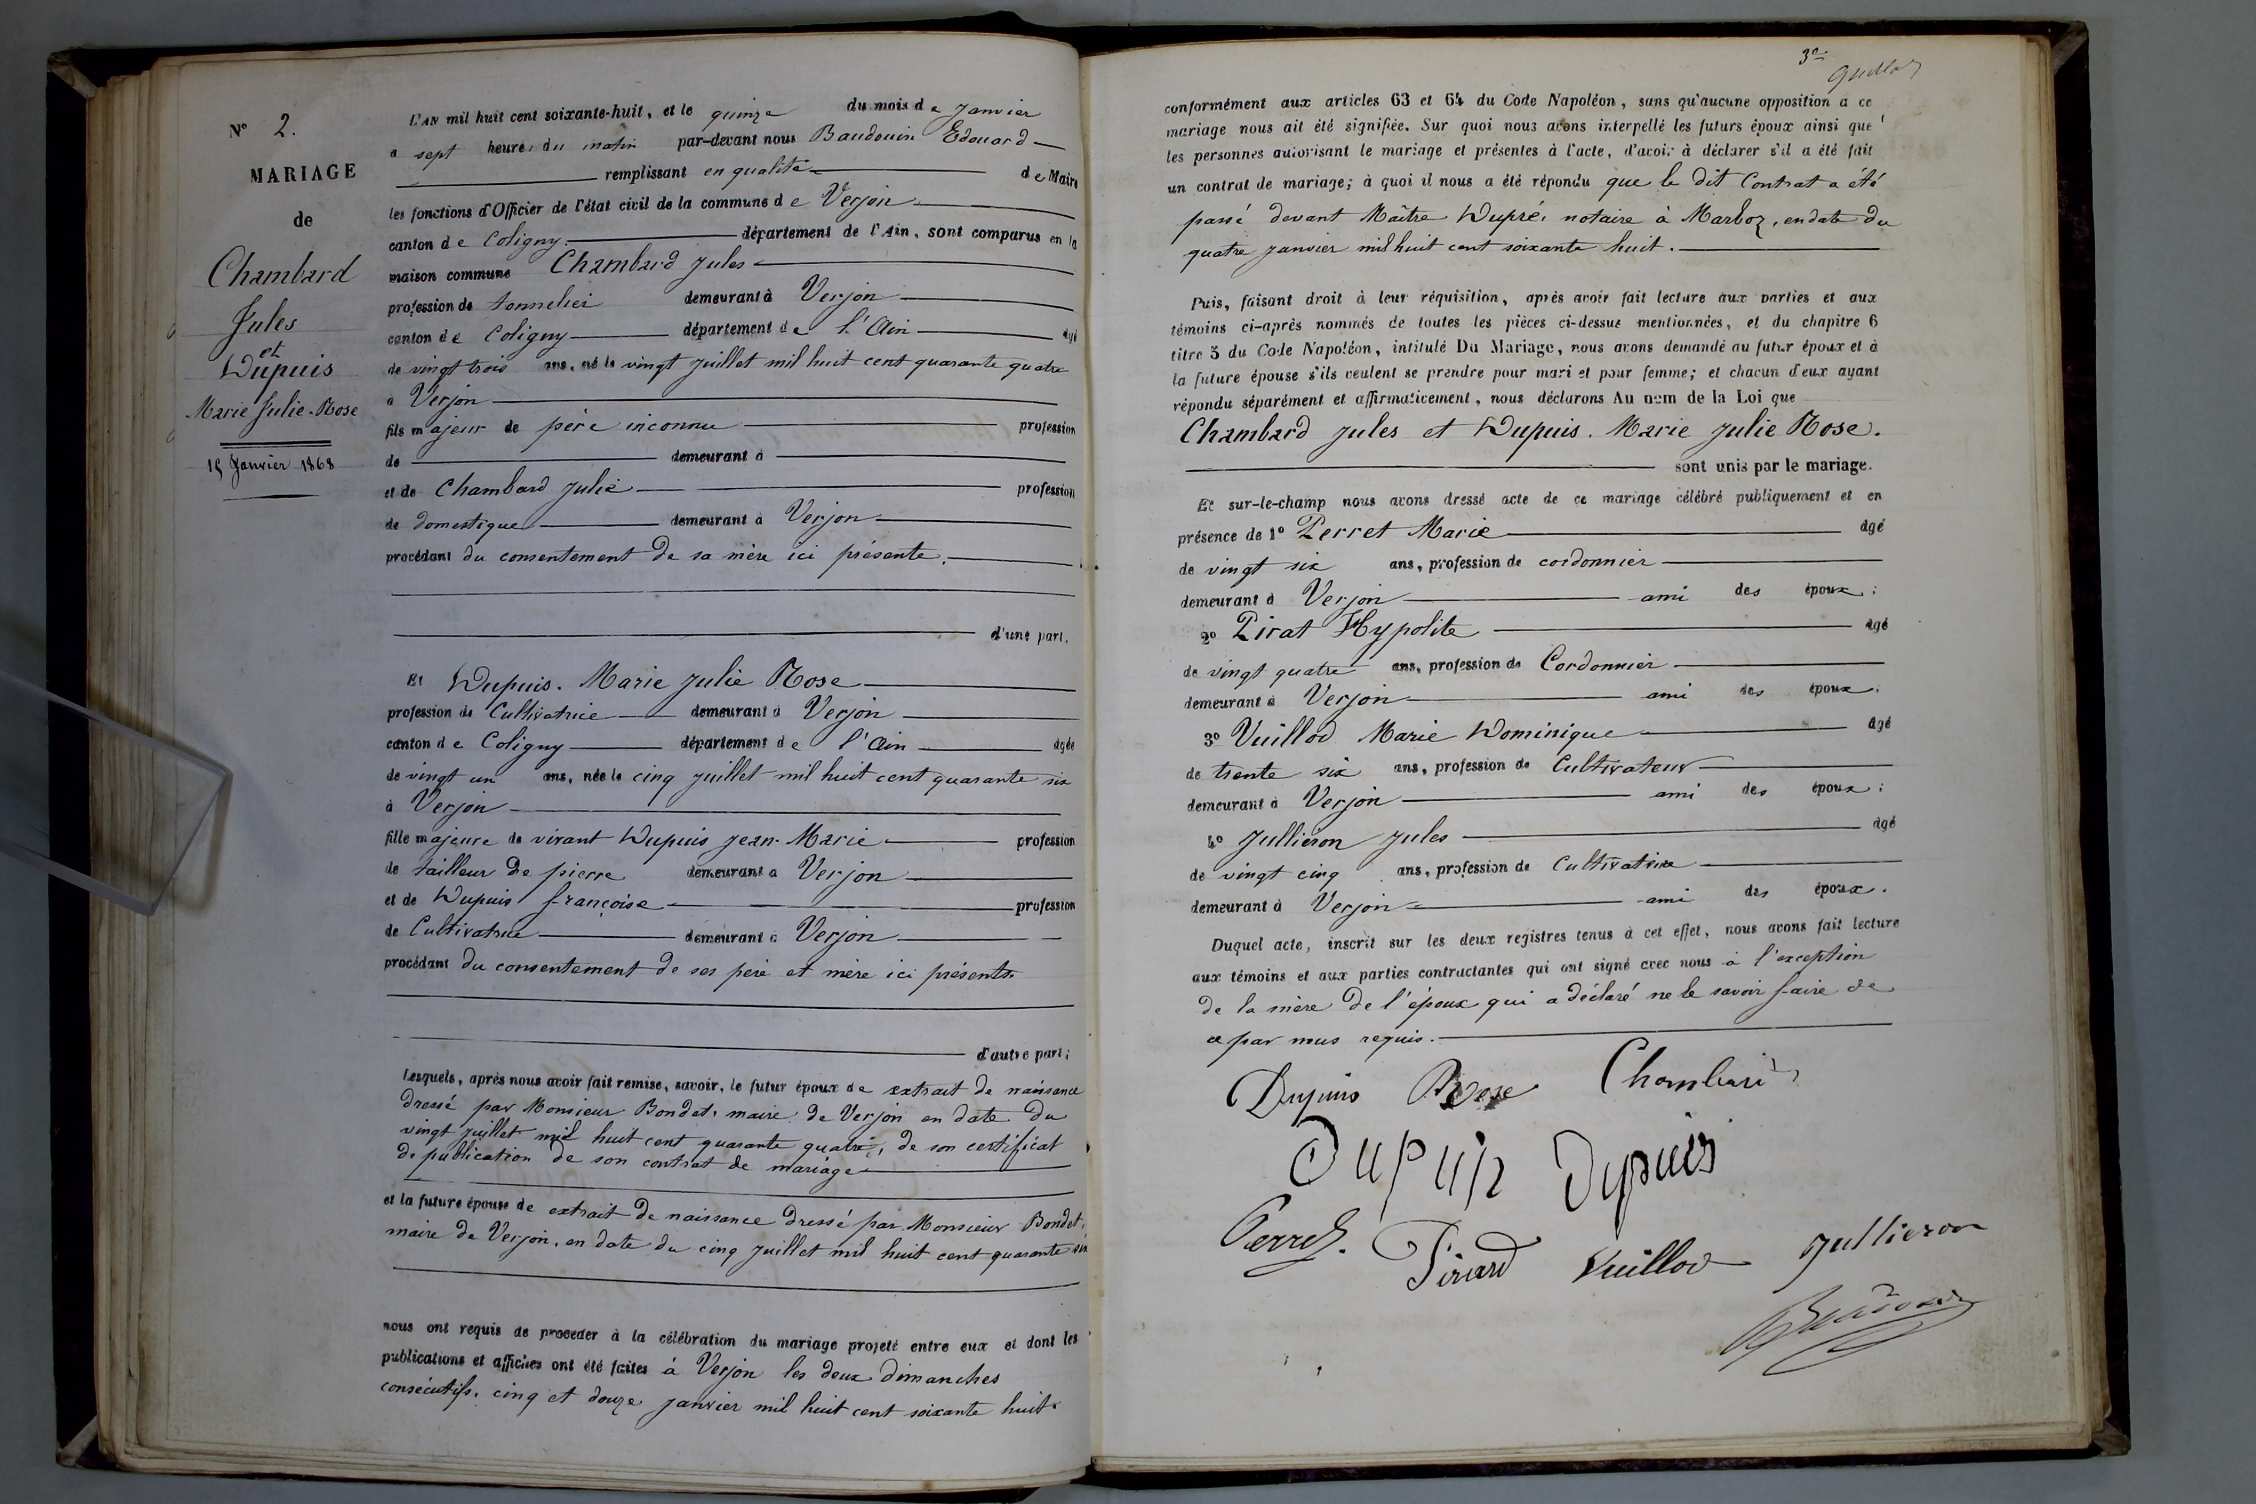 N° 2.
MARIAGE
de
Chambard
Jules
et
Dupuis
Marie Julie Rose
15 Janvier 1868
L'AN mil huit cent soixante-huit, et le quinze du mois de Janvier
a sept heures du matin par-devant nous Baudouin Edouard
remplissant en qualité de Maire
les fonctions d'Officier de l'état civil de la commune de Verjon
canton de Coligny département de l'Ain, sont comparus en la
maison commune Chambard Jules
profession de tonnelier demeurant à Verjon
canton de Coligny département de l'Ain âgé
de vingt trois ans, né le vingt juillet mil huit cent quarante quatre
à Verjon
fils majeur de père inconnu profession
de demeurant à
et de Chambard Julie profession
de domestique demeurant à Verjon
procédant du consentement de sa mère ici présente.
d'une part.
Et Dupuis. Marie Julie Rose
profession de Cultivatrice demeurant à Verjon
canton de Coligny département de l'Ain âgée
de vingt un ans, née le cinq juillet mil huit cent quarante six
à Verjon
fille majeure de vivant Dupuis Jean-Marie profession
de tailleur de pierre demeurant a Verjon
et de Dupuis françoise profession
de Cultivatrice demeurant à Verjon
procédant du consentement de ses père et mère ici présents
d'autre part;
Lesquels, après nous avoir fait remise, savoir, le futur époux de extrait de naissance
dressé par Monsieur Bondet, maire de Verjon en date du
vingt juillet mil huit cent quarante quatre, de son certificat
de publication de son contrat de mariage
et la future épouse de extrait de naissance dressé par Monsieur Bondet,
maire de Verjon, en date du cinq juillet mil huit cent quarante six
nous ont requis de proceder à la célébration du mariage projeté entre eux et dont les
publications et affiches ont été faites à Verjon les deux dimanches
consécutifs, cinq et douze janvier mil huit cent soixante huit
3e
conformément aux articles 63 et 64 du Code Napoléon, sans qu'aucune opposition a ce
mariage nous ait été signifiée. Sur quoi nous avons interpellé les futurs époux ainsi que
les personnes autorisant le mariage et présentes à l'acte, d'avoir à déclarer s'il a été fait
un contrat de mariage; à quoi il nous a été répondu que le dit Contrat a été
passé devant Maître Dupré, notaire à Marboz, en date du
quatre janvier mil huit cent soixante huit.
Puis, faisant droit à leur réquisition, après avoir fait lecture aux parties et aux
témoins ci-après nommés de toutes les pièces ci-dessus mentionnées, et du chapitre 6
titre 5 du Code Napoléon, intitulé Du Mariage, nous avons demandé au futur époux et à
la future épouse s'ils veulent se prendre pour mari et pour femme; et chacun d'eux ayant
répondu séparément et affirmativement, nous déclarons Au nom de la Loi que
Chambard Jules et Dupuis. Marie Julie Rose.
sont unis par le mariage.
Et sur-le-champ nous avons dressé acte de ce mariage célébré publiquement et en
présence de 1° Perret Marie âgé
de vingt six ans, profession de cordonnier
demeurant à Verjon ami des époux;
2° Pirat Hypolite âgé
de vingt quatre ans, profession de Cordonnier
demeurant à Verjon ami des époux;
3° Vuillod Marie Dominique âgé
de trente six ans, profession de Cultivateur
demeurant à Verjon ami des époux;
4° Julliéron Jules âgé
de vingt cinq ans, profession de Cultivatrice
demeurant à Verjon ami des époux.
Duquel acte, inscrit sur les deux registres tenus à cet effet, nous avons fait lecture
aux témoins et aux parties contractantes qui ont signé avec nous à l'exception
de la mère de l'époux qui a déclaré ne le savoir faire de
ce par nous requis.
Dupuis Rose Chambard
Dupuis Dupuis
Perret. Pirard Vuillod Jullieron
Baudouin